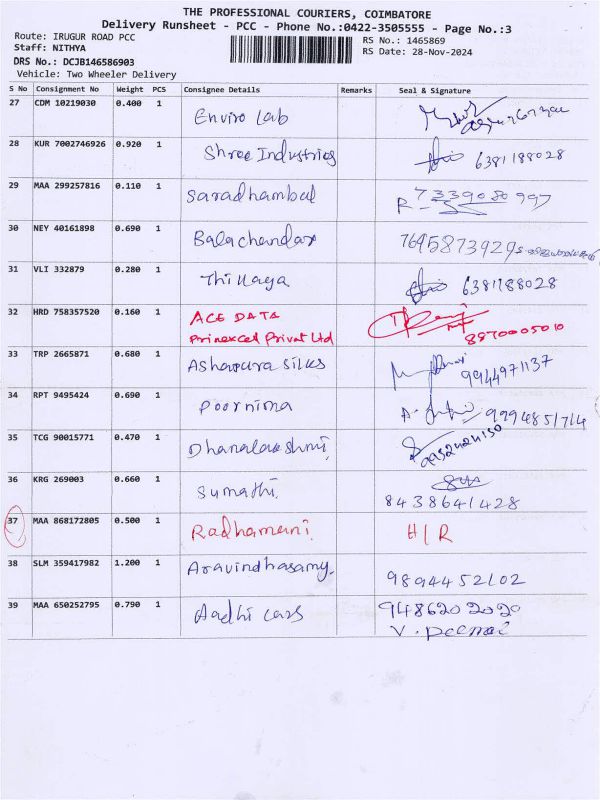 THE PROFESSIONAL COURIERS, COIMBATORE
Delivery Runsheet - PCC - Phone No.:0422-3505555 - Page No.:3
Route: IRUGUR ROAD PCC
Staff: NITHYA
RS No.: 1465869
RS Date: 28-Nov-2024
DRS No.: DCJB146586903
Vehicle: Two Wheeler Delivery
S No Consignment No Weight PCS Consignee Details Remarks Seal & Signature
27 CDM 10219030 0.400 1 Enviro Lab
28 KUR 7002746926 0.920 1 Shree Industries 6381188028
29 MAA 299257816 0.110 1 Saradhambal 7339080997
30 NEY 40161898 0.690 1 Balachandar 7695873929
31 VLI 332879 0.280 1 Thillaga 6381188028
32 HRD 758357520 0.160 1 ACE DATA
Prinexcel Privat Ltd 8870005010
33 TRP 2665871 0.680 1 Ashapura silks 9944971137
34 RPT 9495424 0.690 1 Poornima 9994851714
35 TCG 90015771 0.470 1 Dhanalakshmi
36 KRG 269003 0.660 1 Sumathi 8438641428
37 MAA 868172805 0.500 1 Radhamani H/R
38 SLM 359417982 1.200 1 Aravindhasamy 9894452102
39 MAA 650252795 0.790 1 Aadhi cars 9486202020